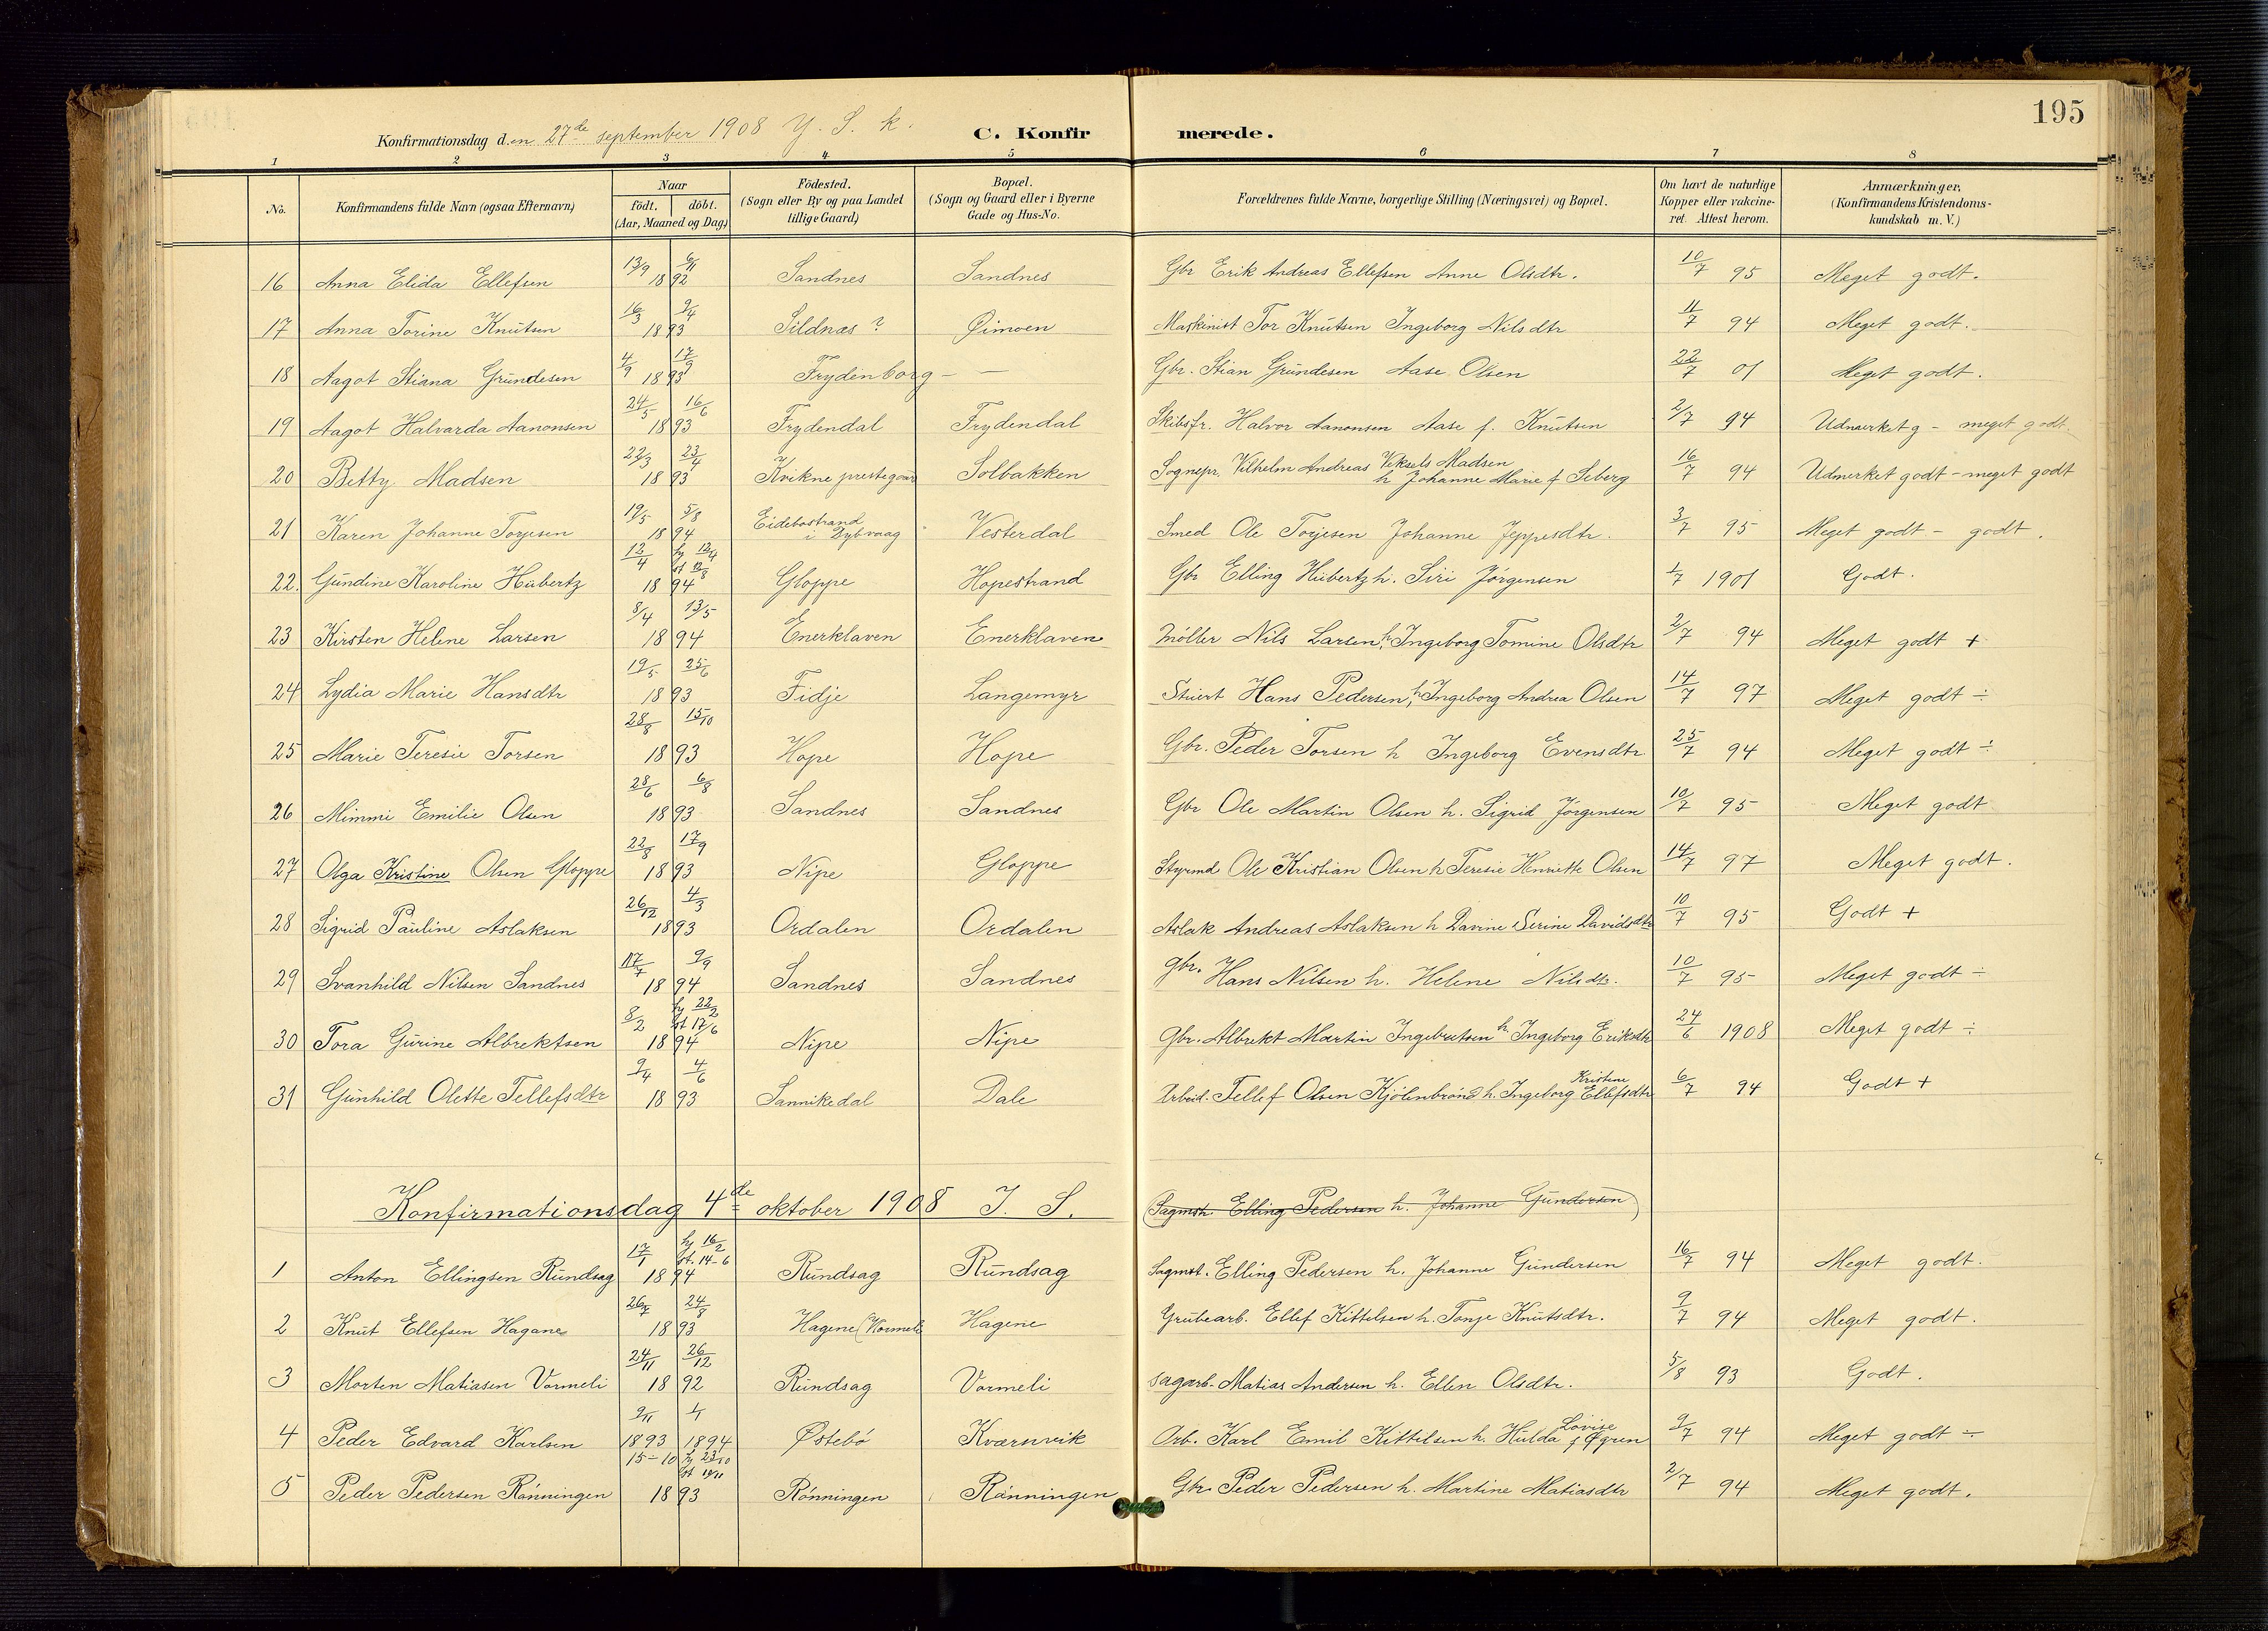 195
Konfirmationsdag den 27de september 1908 Y. S. k. C. Konfirmerede.
1 2 3 4 5 6 7 8
No. Konfirmandens fulde Navn (ogsaa Efternavn) Naar födt. döbt. (Aar, Maaned og Dag) Födested. (Sogn eller By og paa Landet tillige Gaard) Bopæl. (Sogn og Gaard eller i Byerne Gade og Hus-No. Forældrenes fulde Navne, borgerlige Stilling (Næringsvei) og Bopæl. Om havt de naturlige Kopper eller vakcineret. Attest herom. Anmærkninger, (Konfirmandens Kristendomskundskab m. V.)
16 Anna Elida Ellefsen 13/9 6/11 1892 Sandnes Sandnes Gbr Erik Andreas Ellefsen Anne Olsdtr. 10/7 95 Meget godt.
17 Anna Torine Knutsen 16/3 9/4 1893 Sildnæs? Øimoen Maskinist Tor Knutsen Ingeborg Nilsdtr 11/7 94 Meget godt.
18 Aagot Stiana Grundesen 4/9 17/9 1893 Frydenborg — — Gbr. Stian Grundesen Aase Olsen 22/7 01 Meget godt.
19 Aagot Halvarda Aanonsen 24/5 16/6 1893 Frydendal Frydendal Skibsfr. Halvor Aanonsen Aase f. Knutsen 2/7 94 Udmerket g - meget godt
20 Betty Madsen 22/3 23/4 1893 Kvikne prestegaard Solbakken Sognepr. Vilhelm Andreas Veksels Madsen h Johanne Marie f Seberg 16/7 94 Udmerket godt - meget godt
21 Karen Johanne Torjesen 19/5 5/8 1894 Eidebostrand i Dybvaag Vesterdal Smed Ole Torjesen Johanne Jeppesdtr. 3/7 95 Meget godt - godt.
22. Gundine Karoline Hubertz 12/4 hj 12/4 st 12/8 1894 Gloppe Hopestrand Gbr Elling Hubertz h. Siri Jørgensen 1/7 1901 Godt.
23 Kirsten Helene Larsen 8/4 13/5 1894 Enerklaven Enerklaven Möller Nils Larsen h. Ingeborg Tomine Olsdtr 2/7 94 Meget godt +
24 Lydia Marie Hansdtr 19/5 25/6 1893 Fidje Langemyr Stuert Hans Pedersen, h. Ingeborg Andrea Olsen 14/7 97 Meget godt ÷
25 Marie Teresie Torsen 28/8 15/10 1893 Hope Hope Gbr. Peder Torsen h Ingeborg Evensdtr 25/7 94 Meget godt ÷
26 Mimmi Emilie Olsen 28/6 6/8 1893 Sandnes Sandnes Gbr Ole Martin Olsen h. Sigrid Jørgensen 10/7 95 Meget godt
27 Olga Kristine Olsen Gloppe 22/8 17/9 1893 Nipe Gloppe Styrmd Ole Kristian Olsen h Teresie Henriette Olsen 14/7 97 Meget godt.
28 Sigrid Pauline Aslaksen 26/12 4/3 1893 Ordalen Ordalen Aslak Andreas Aslaksen h Davine Serine Davidsdtr 10/7 95 Godt +
29 Svanhild Nilsen Sandnes 17/7 9/9 1894 Sandnes Sandnes Gbr. Hans Nilsen h. Helene Nilsdtr. 10/7 95 Meget godt ÷
30 Tora Gurine Albrektsen 8/2 hj 22/2 st 17/6 1894 Nipe Nipe Gbr. Albrekt Martin Ingebretsen h. Ingeborg Eriksdtr 24/6 1908 Meget godt ÷
31 Gunhild Olette Tellefsdtr 9/4 4/6 1893 Sannikedal Dale Arbeid. Tellef Olsen Kjölenbrönd h. Ingeborg Kristene Ellefsdtr 6/7 94 Godt +
Konfirmationsdag 4de oktober 1908 I. S. (Sagmst. Elling Pedersen h. Johanne Gundersen)
1 Anton Ellingsen Rundsag 17/1 hj 16/2 st. 14-6 1894 Rundsag Rundsag Sagmst. Elling Pedersen h. Johanne Gundersen 16/7 94 Meget godt.
2 Knut Ellefsen Hagane 26/7 24/8 1893 Hagene (Vormeli Hagene Grubearb. Ellef Kittelsen h. Tonje Knutsdtr. 9/7 94 Meget godt.
3 Morten Matiasen Vormeli 24/11 26/12 1892 Rundsag Vormeli sagarb. Matias Andersen h. Ellen Olsdtr. 5/8 93 Godt.
4 Peder Edvard Karlsen 9/11 1/1 1893 1894 Østebö Kvarsvik Arb. Karl Emil Kittilsen h. Hulda Lovise f Øgren 9/7 94 Meget godt ÷
5 Peder Pedersen Rønningen 15-10 hj 23/10 1893 Rønningen Rønningen Gbr. Peder Pedersen h. Martine Matiasdtr 2/7 94 Meget godt.